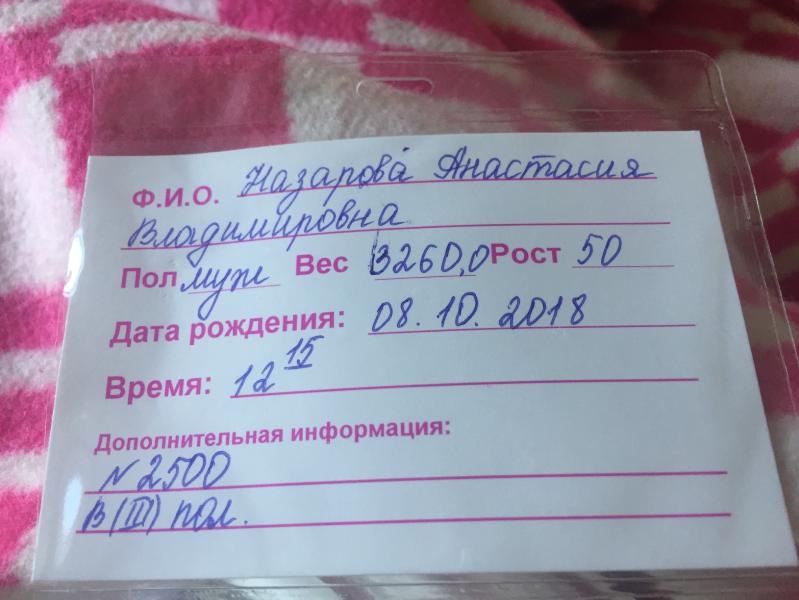 Ф.И.О. Назарова Анастасия
Владимировна
Пол муж Вес 3260,0 Рост 50
Дата рождения: 08.10.2018
Время: 12 15
Дополнительная информация:
N 2500
B(III) пол.